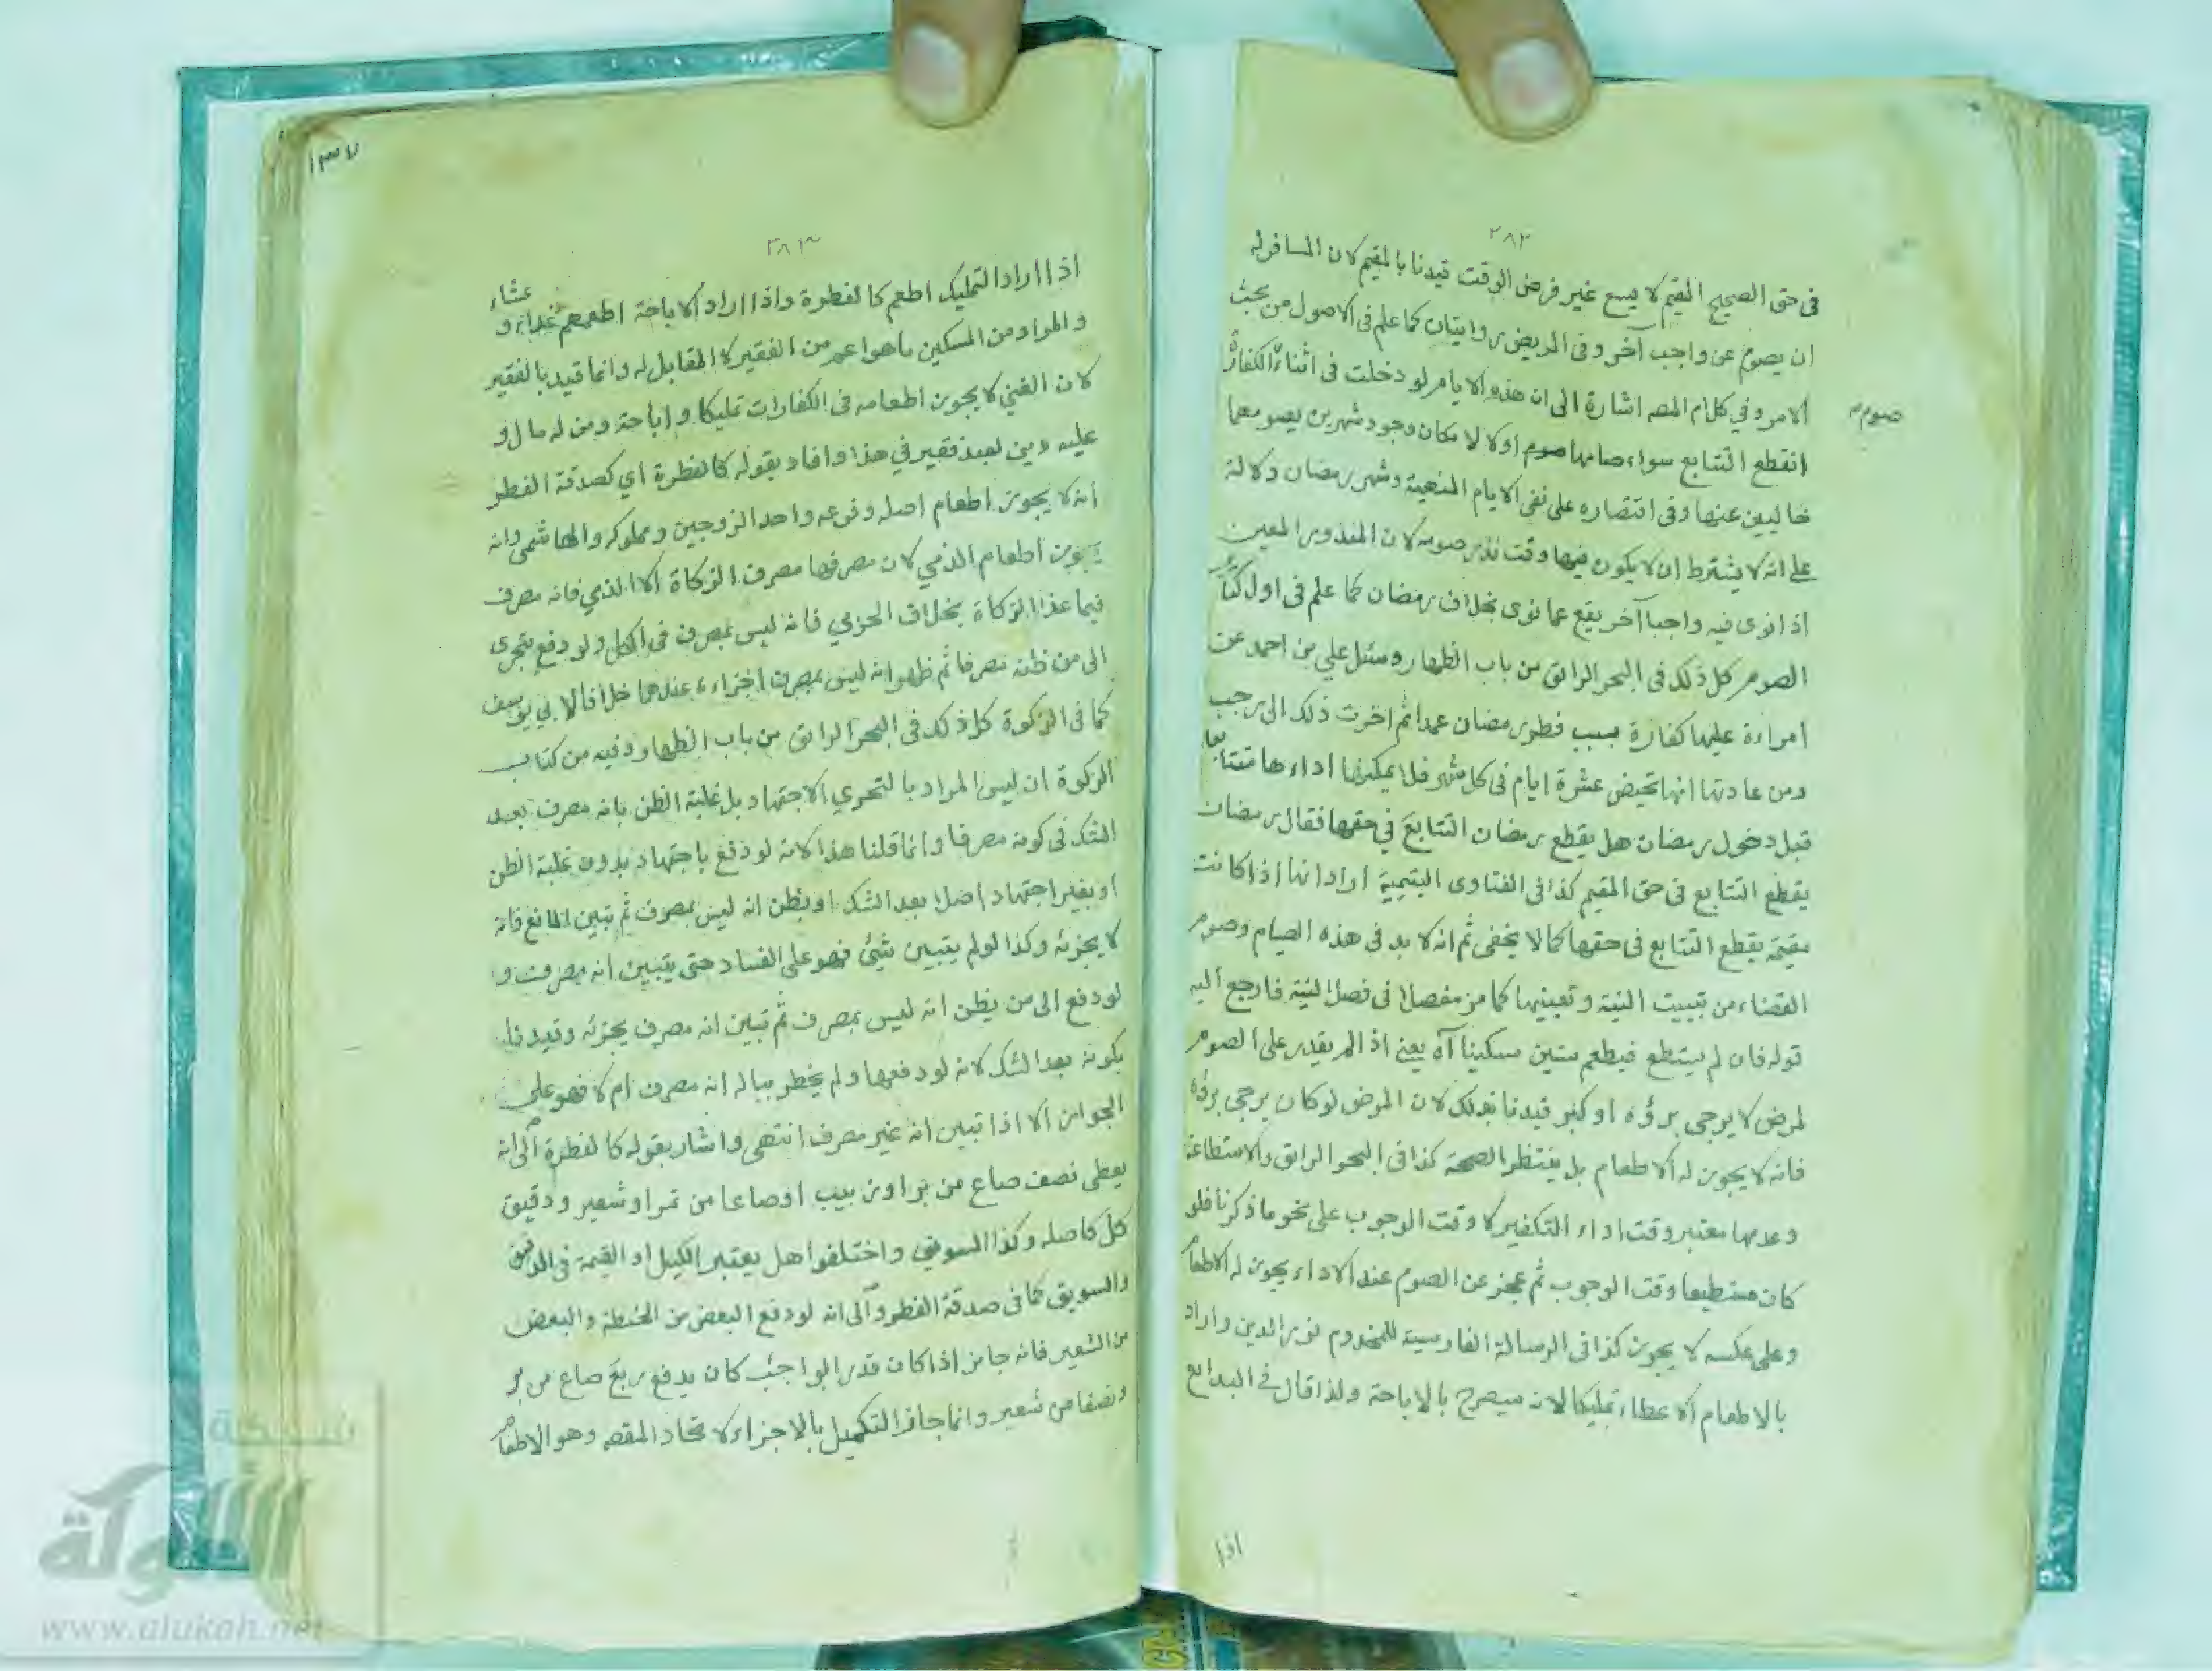 ٢٨٢
فى حق الصحيح المقيم لا يسع غير فرض الوقت قيدنا بالمقيم لان المسافر له
ان يصوم عن واجب آخر وفى المريض روايتان كما علم فى الاصول من بحث
الامر وفي كلام المصه اشارة الى ان هذه الايام لو دخلت فى اثناء الكفارة
صوم
انقطع التتابع سواء صامها اولا لامكان وجود شهرين يصومهما
خاليين عنها وفى اقتصاره على نفى الايام المنهية وشهر رمضان دلالة
على انه لا يشترط ان لا يكون فيها وقت نذر صومه لان المنذور المعين
اذا نوى فيه واجبا آخر يقع عما نوى بخلاف رمضان كما علم فى اول كتاب
الصوم كل ذلك فى البحر الرائق من باب الظهار وسئل علي بن احمد عن
امراءة عليها كفارة بسبب فطر رمضان عمدا ثم اخرت ذلك الى رجب
ومن عادتها انها تحيض عشرة ايام فى كل شهر فلا يمكنها اداءها متتابعا
قبل دخول رمضان هل يقطع رمضان التتابع في حقها فقال رمضان
يقطع التتابع فى حق المقيم كذا فى الفتاوى اليتيمية اراد انها اذا كانت
مقيمة يقطع التتابع فى حقها كما لا يخفى ثم انه لا بد فى هذه الصيام وصوم
القضاء من تبييت النية وتعيينها كما مر مفصلا فى فصل النية فارجع اليه
قوله فان لم يستطع فيطعم ستين مسكينا آه يعني اذا لم يقدر على الصوم
لمرض لا يرجى برؤه او كبر قيدنا بذلك لان المرض لو كان يرجى برؤه
فانه لا يجوز له الاطعام بل ينتظر الصحة كذا فى البحر الرائق والاستطاعة
وعدمها معتبر وقت اداء التكفير لا وقت الوجوب على نحو ما ذكرنا فلو
كان مستطيعا وقت الوجوب ثم عجز عن الصوم عند الاداء يجوز له الاطعام
وعلى عكسه لا يجوز كذا فى الرسالة الفارسية للمخدوم نور الدين واراد
بالاطعام الاعطاء تمليكا لانه سيصرح بالاباحة ولذا قال في البدائع
اذا
١٣٧
٢٨٣
اذا اراد التمليك اطعم كالفطرة واذا اراد الاباحة اطعمهم غداء و عشاء
والمراد من المسكين ما هو اعم من الفقير لا المقابل له وانما قيد بالفقير
لان الغني لا يجوز اطعامه فى الكفارات تمليكا واباحة ومن له مال و
عليه دين لعبد فقير في هذا وافاد بقوله كالفطرة اي كصدقة الفطر
انه لا يجوز اطعام اصله وفرعه واحد الزوجين ومملوكه والهاشمى وانه
يجوز اطعام الذمي لان مصرفها مصرف الزكاة الا الذمي فانه مصرف
فيما عدا الزكاة بخلاف الحربي فانه ليس بمصرف فى الكل ولو دفع بتحرى
الى من ظنه مصرفا ثم ظهر انه ليس بمصرف اجزاءه عندهما خلافا لابي يوسف
كما فى الزكوة كل ذلك فى البحر الرائق من باب الظهار وفيه من كتاب
الزكوة ان ليس المراد بالتحري الاجتهاد بل غلبة الظن بانه مصرف بعد
الشك فى كونه مصرفا وانما قلنا هذا لانه لو دفع باجتهاد بدون غلبة الظن
او بغير اجتهاد اصلا بعد الشك او بظن انه ليس بمصرف ثم تبين المانع فانه
لا يجزئه وكذا لو لم يتبين شئ فهو على الفساد حتى يتبين انه مصرف و
لو دفع الى من يظن انه ليس بمصرف ثم تبين انه مصرف يجزئه وقيدنا
بكونه بعد الشك لانه لو دفعها ولم يخطر بباله انه مصرف ام لا فهو على
الجواز الا اذا تبين انه غير مصرف انتهى واشار بقوله كالفطرة الى انه
يعطى نصف صاع من بر او زبيب او صاعا من تمر او شعير ودقيق
كل كاصله وكذا السويق واختلفوا هل يعتبر الكيل او القيمة فى الدقيق
والسويق كما فى صدقة الفطر والى انه لو دفع البعض من الحنطة والبعض
من الشعير فانه جائز اذا كان قدر الواجب كان يدفع ربع صاع من بر
ونصفا من شعير وانما جاز التكميل بالاجزاء لاتحاد المقصه وهو الاطعام
شبكة
الألوكة
www.alukah.net